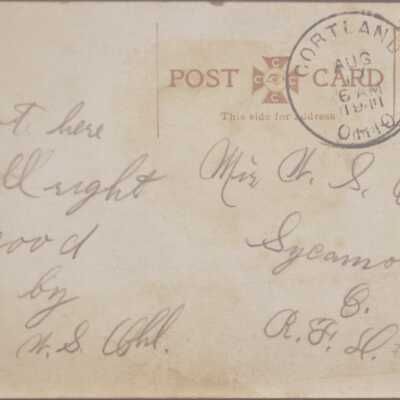 POST CARD
This side for address
CORTLAND
AUG
6 AM
1911
OHIO
t here
All right
good
by
W. S. Ohl.
W. S.
Sycamo
O.
R. F. D.